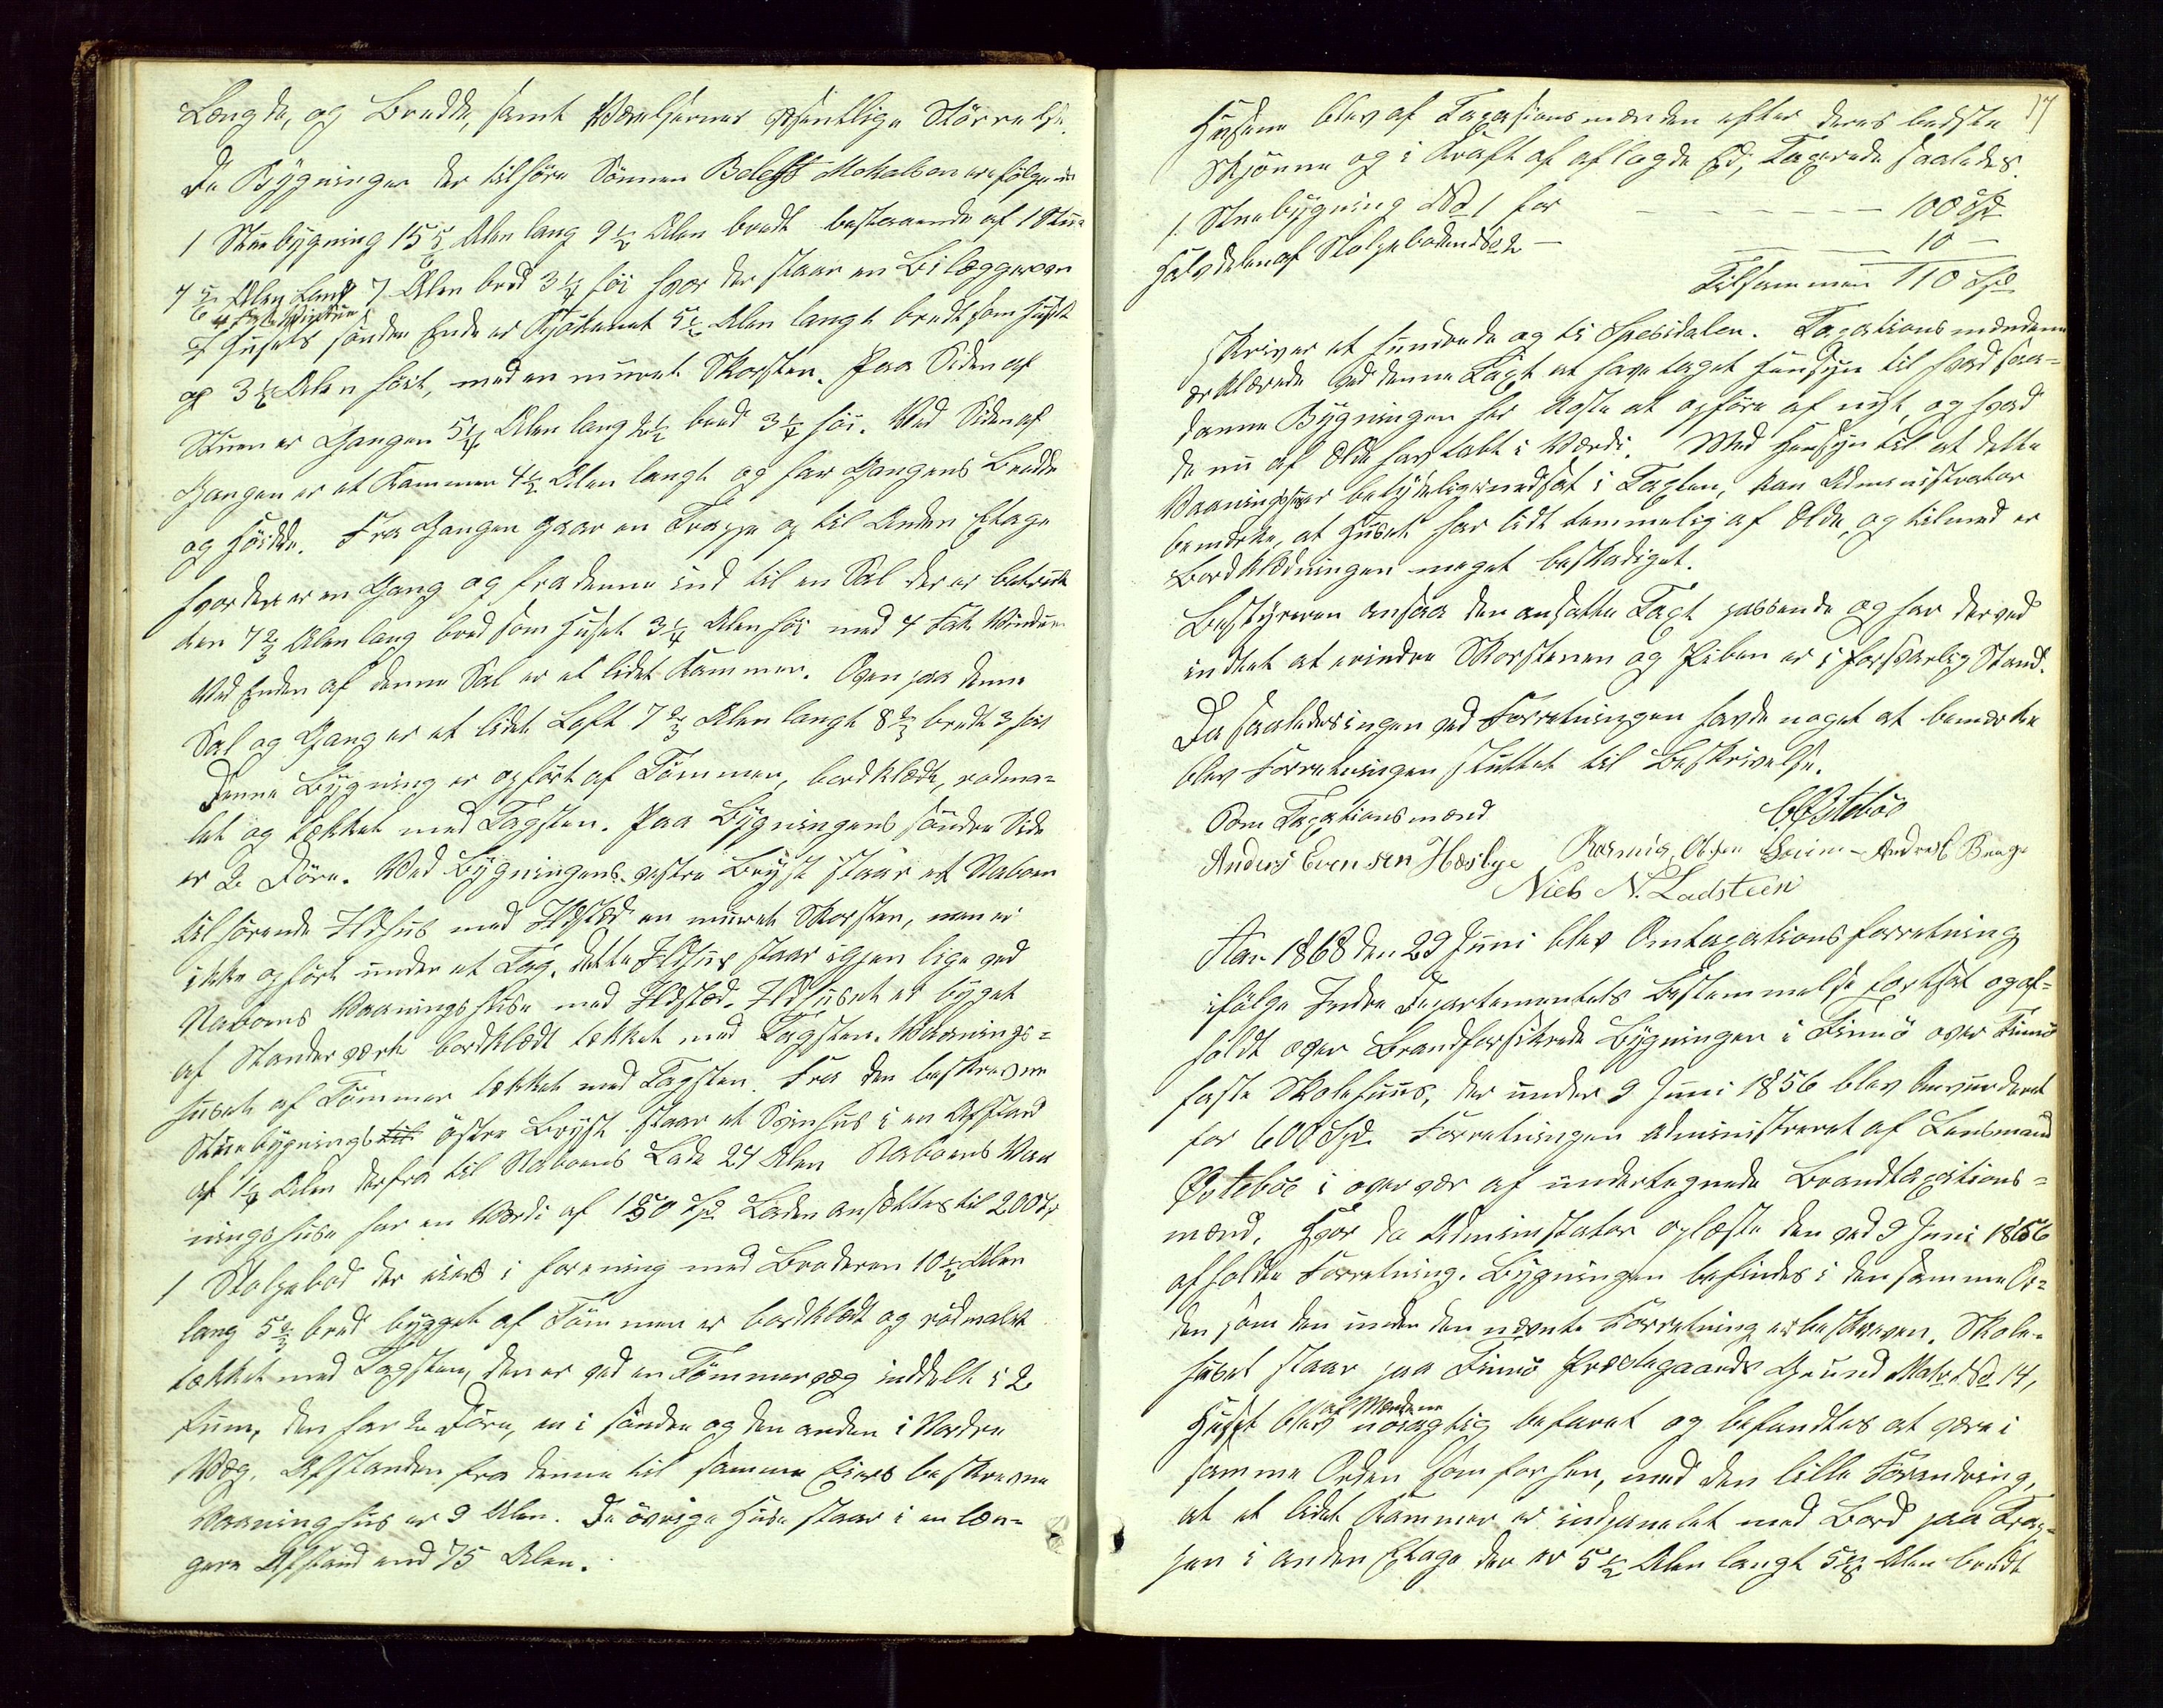 Længde, og Bredde, samt Værelsernes ordentlige Størrelse.
De Bygninger der tilhøre Sønnen Beleff Mokalsen ere følgende
1 Stuebygning 15 5/6 Alen lang 9 1/2 Alen bredt bestaaende af 1 Stue
7 5/6 Alen Lang 7 Alen bred 3 1/4 høi hvor der staar en Bilæggerovn
4 Fag Vinduer
I Husets søndre Ende er Kjøkenet 5 1/2 Alen langt bredt som Huset
og 3 1/4 Alen høit, med en muret Skorsten. Paa Siden af
Stuen er Gangen 5 1/4 Alen lang 2 1/2 bred 3 1/4 høi. Ved Siden af
Gangen er et Kammer 4 1/2 Alen langt og har Gangens Bredde
og Høidde. Fra Gangen gaar en Trappe op til Anden Etage
hvor der er en Gang og fra denne ind til en Sal der er betrukk
ken 7 2/3 Alen lang bred som Huset 3 1/4 Alen høi med 4 Fak Vinduer
Ved Enden af denne Sal er et lidet Kammer. Oven paa denne
Sal og Gang er et lidet Loft 7 2/3 Alen langt 8 1/2 bredt 3 høit
Denne Bygning er opført af Tømmer, bordklædt, rødma-
let og tækket med Tagsten. Paa Bygningens søndre Side
er 2 Døre. Ved Bygningens vestre Bryst staar et Naboen
tilhørende Ildhus med Ildsted en muret Skorsten, men ei
ikke opført under et Tag. Dette Ildhus staar igjen lige ved
Naboens Vaaningshuse med Ildsted. Ildhuset er bygget
af Standerværk bordklædt tækket med Tagsten. Vaanings-
huset af Tømmer tækket med Tagsten. Fra den beskrevne
Stuebygnings østre Bryst staar et Svinhus i en Afstand
af 1 1/4 Alen derfra til Naboens Lade 24 Alen Naboens Vaa
ningshuse har en Værdi af 150 Spd Laden ansættes til 200 Sp
1 Stolpebod der eies i forening med Broderen 10 1/2 Alen
lang 5 2/3 bred bygget af Tømmer er bordklædt og rødmalet
tækket med Tagsten, den er ved en Tømmervæg inddelt i 2
Rum, den har 2 Døre, en i søndre og den anden i Nordre
Væg. Afstanden fra denne til samme Eiers beskrevne
Vaaninghus er 9 Alen. De øvrige Huse staar i en læn-
gere Afstand end 75 Alen.
17
Husene blev af Taxasionsmænden efter deres bedste
Skjønne og i Kraft af aflagde Ed, Taxerede saaledes.
1 Stuebygning No 1 for 100 Spd
Halvdelen af Stolpeboden No 2 — 10 —
Tilsammen 110 Spd
skriver et hundrede og ti Spesidaler. Taxationsmændene
erklærede ved denne Taxt at have taget Hensyn til hvad saa-
danne Bygninger her koste at opføre af nyt, og hvad
de nu af Ælde hav tabt i Værdi. Med Hensyn til at dette
Vaaningshus er betydelig nedsat i Taxten, kan Administrator
bemærke, at Huset har lidt temmelig af Ælde, og tilmed er
Bordklædningen meget beskadiget.
Bestyreren ansaa den ansatte Taxt passende og har derved
indtet at erindre Skorstenen og Piben er i forsvarlig Stand.
Da saaledes ingen ved Forretningen havde noget at bemærke
blev Forretningen sluttet til Beskrivelse.
Som Taxationsmænd
Østebøe
Anders Evensen Hæsbye Rasmus Olsen Andreas Berge
Niels N. Ladsteen
Aar 1868 den 29 Juni blev Omtaxationsforretning
ifølge Indre Departementets Bestemmelse fortsat og af-
holdt over Brandforsikrede Bygninger i Finnø over Finnø
faste Skolehuus, der under 9 Juni 1856 blev Anvurderet
for 600 Spd. Forretningen Administreret af Lensmand
Østebøe i overvær af undertegnede Brandtaxations-
mænd. Hvor da Administrator oplæste den ved 9 Juni 1856
afholdte Forretning. Bygningen befindes i den samme Or-
den som den under den nævnte Forretning er beskreven. Skole-
huset staar paa Finnø Præstegaards Grund Matr. No 14,
af Mændene
Huset blev nøiagtig befaret og befandtes at være i
samme Orden som forhen, med den lille Forandring,
at et lidet Kammer er indpanelet med Bord paa Trap-
pen i anden Etage der er 5 1/2 Alen langt 5 Alen bredt